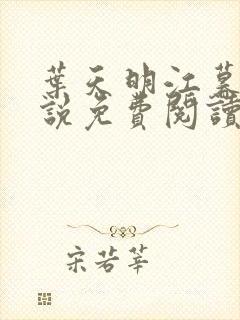 葉天明江慕
說免費閱讀
宋若莘